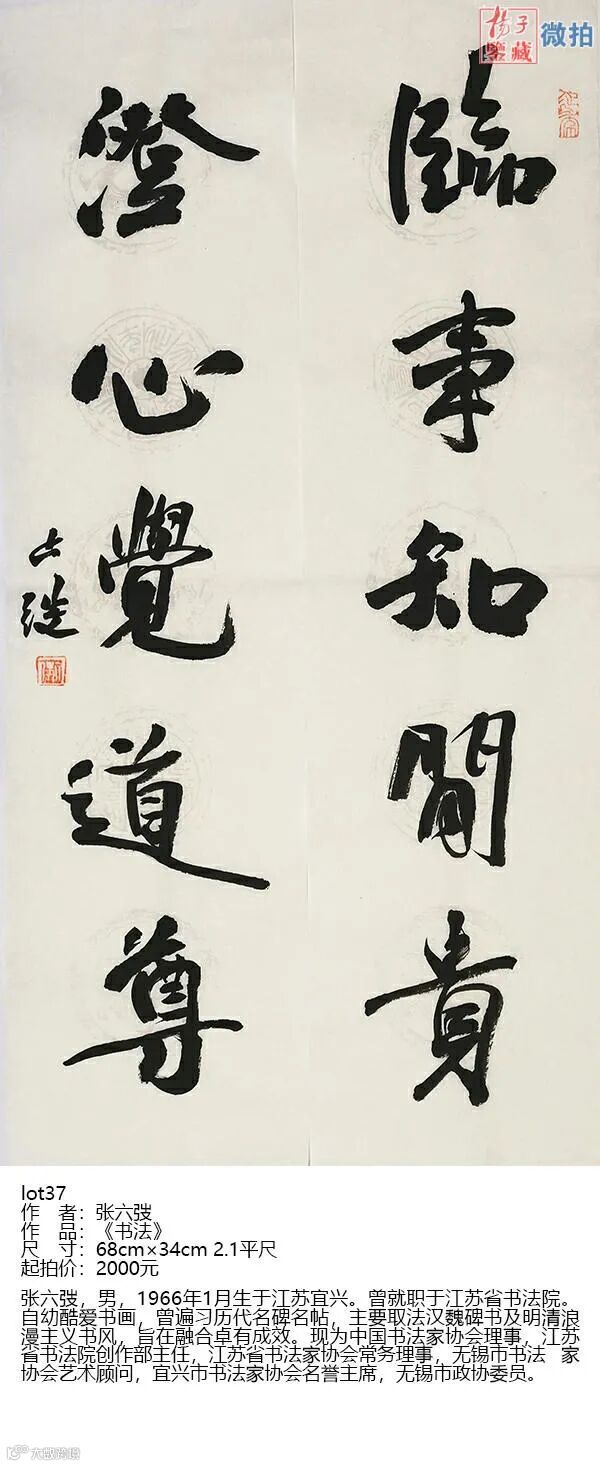 揚子
鑒藏
微拍
臨事知閒貴
澄心覺道尊
lot37
作 者：张六弢
作 品：《书法》
尺 寸：68cm×34cm 2.1平尺
起拍价：2000元
张六弢，男，1966年1月生于江苏宜兴。曾就职于江苏省书法院。
自幼酷爱书画，曾遍习历代名碑名帖，主要取法汉魏碑书及明清浪
漫主义书风，旨在融合卓有成效。现为中国书法家协会理事，江苏
省书法院创作部主任，江苏省书法家协会常务理事，无锡市书法 家
协会艺术顾问，宜兴市书法家协会名誉主席，无锡市政协委员。
大数跨境